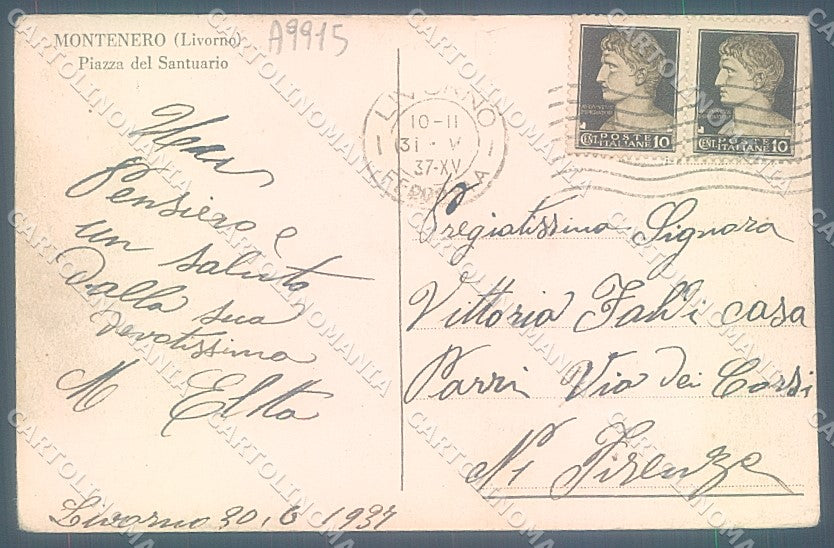 MONTENERO (Livorno)
Piazza del Santuario
A9915
LIVORNO
10-11
31 V
37-XV
FERROVIA
POSTE
ITALIANE
CENT. 10
POSTE
ITALIANE
CENT. 10
Un
Pensiero e
un saluto
dalla sua
devotissima
M
Livorno 30, 6 1937
Pregiatissima Signora
Vittoria casa
Parri Via dei Corsi
N 1 Firenze
CARTOLINOMANIA